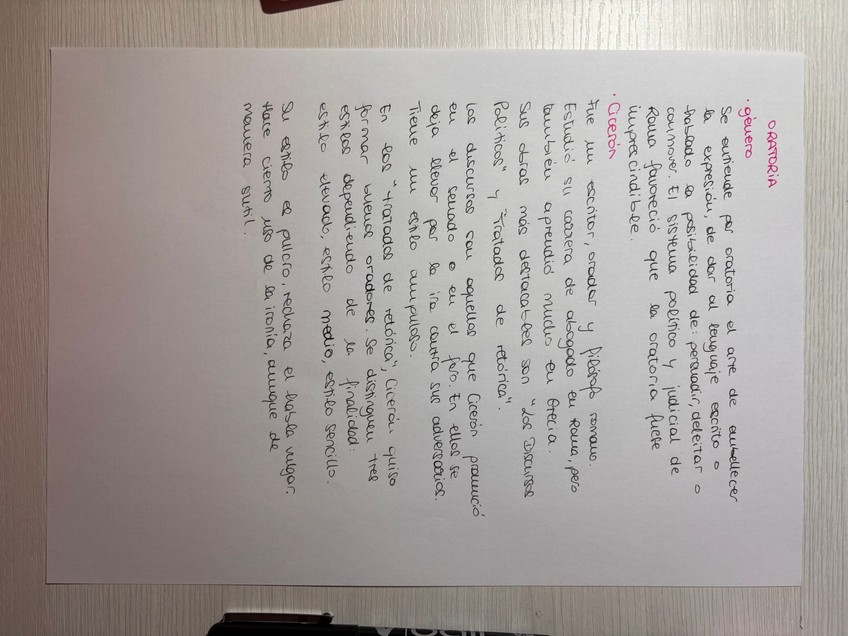 ORATORIA
· género
Se entiende por oratoria el arte de embellecer
la expresión, de dar al lenguaje escrito o
hablado la posibilidad de: persuadir, deleitar o
conmover. El sistema político y judicial de
Roma favoreció que la oratoria fuese
imprescindible.
· Cicerón
Fue un escritor, orador y filósofo romano.
Estudió su carrera de abogado en Roma, pero
también aprendió mucho en Grecia.
Sus obras más destacables son "Los Discursos
Políticos" y "Tratados de retórica".
Los discursos son aquellos que Cicerón pronunció
en el senado o en el foro. En ellos se
deja llevar por la ira contra sus adversarios.
Tiene un estilo ampuloso.
En los "tratados de retórica", Cicerón quiso
formar buenos oradores. Se distinguen tres
estilos dependiendo de la finalidad:
estilo elevado, estilo medio, estilo sencillo.
Su estilo es pulcro, rechaza el habla vulgar.
Hace cierto uso de la ironía, aunque de
manera sutil.